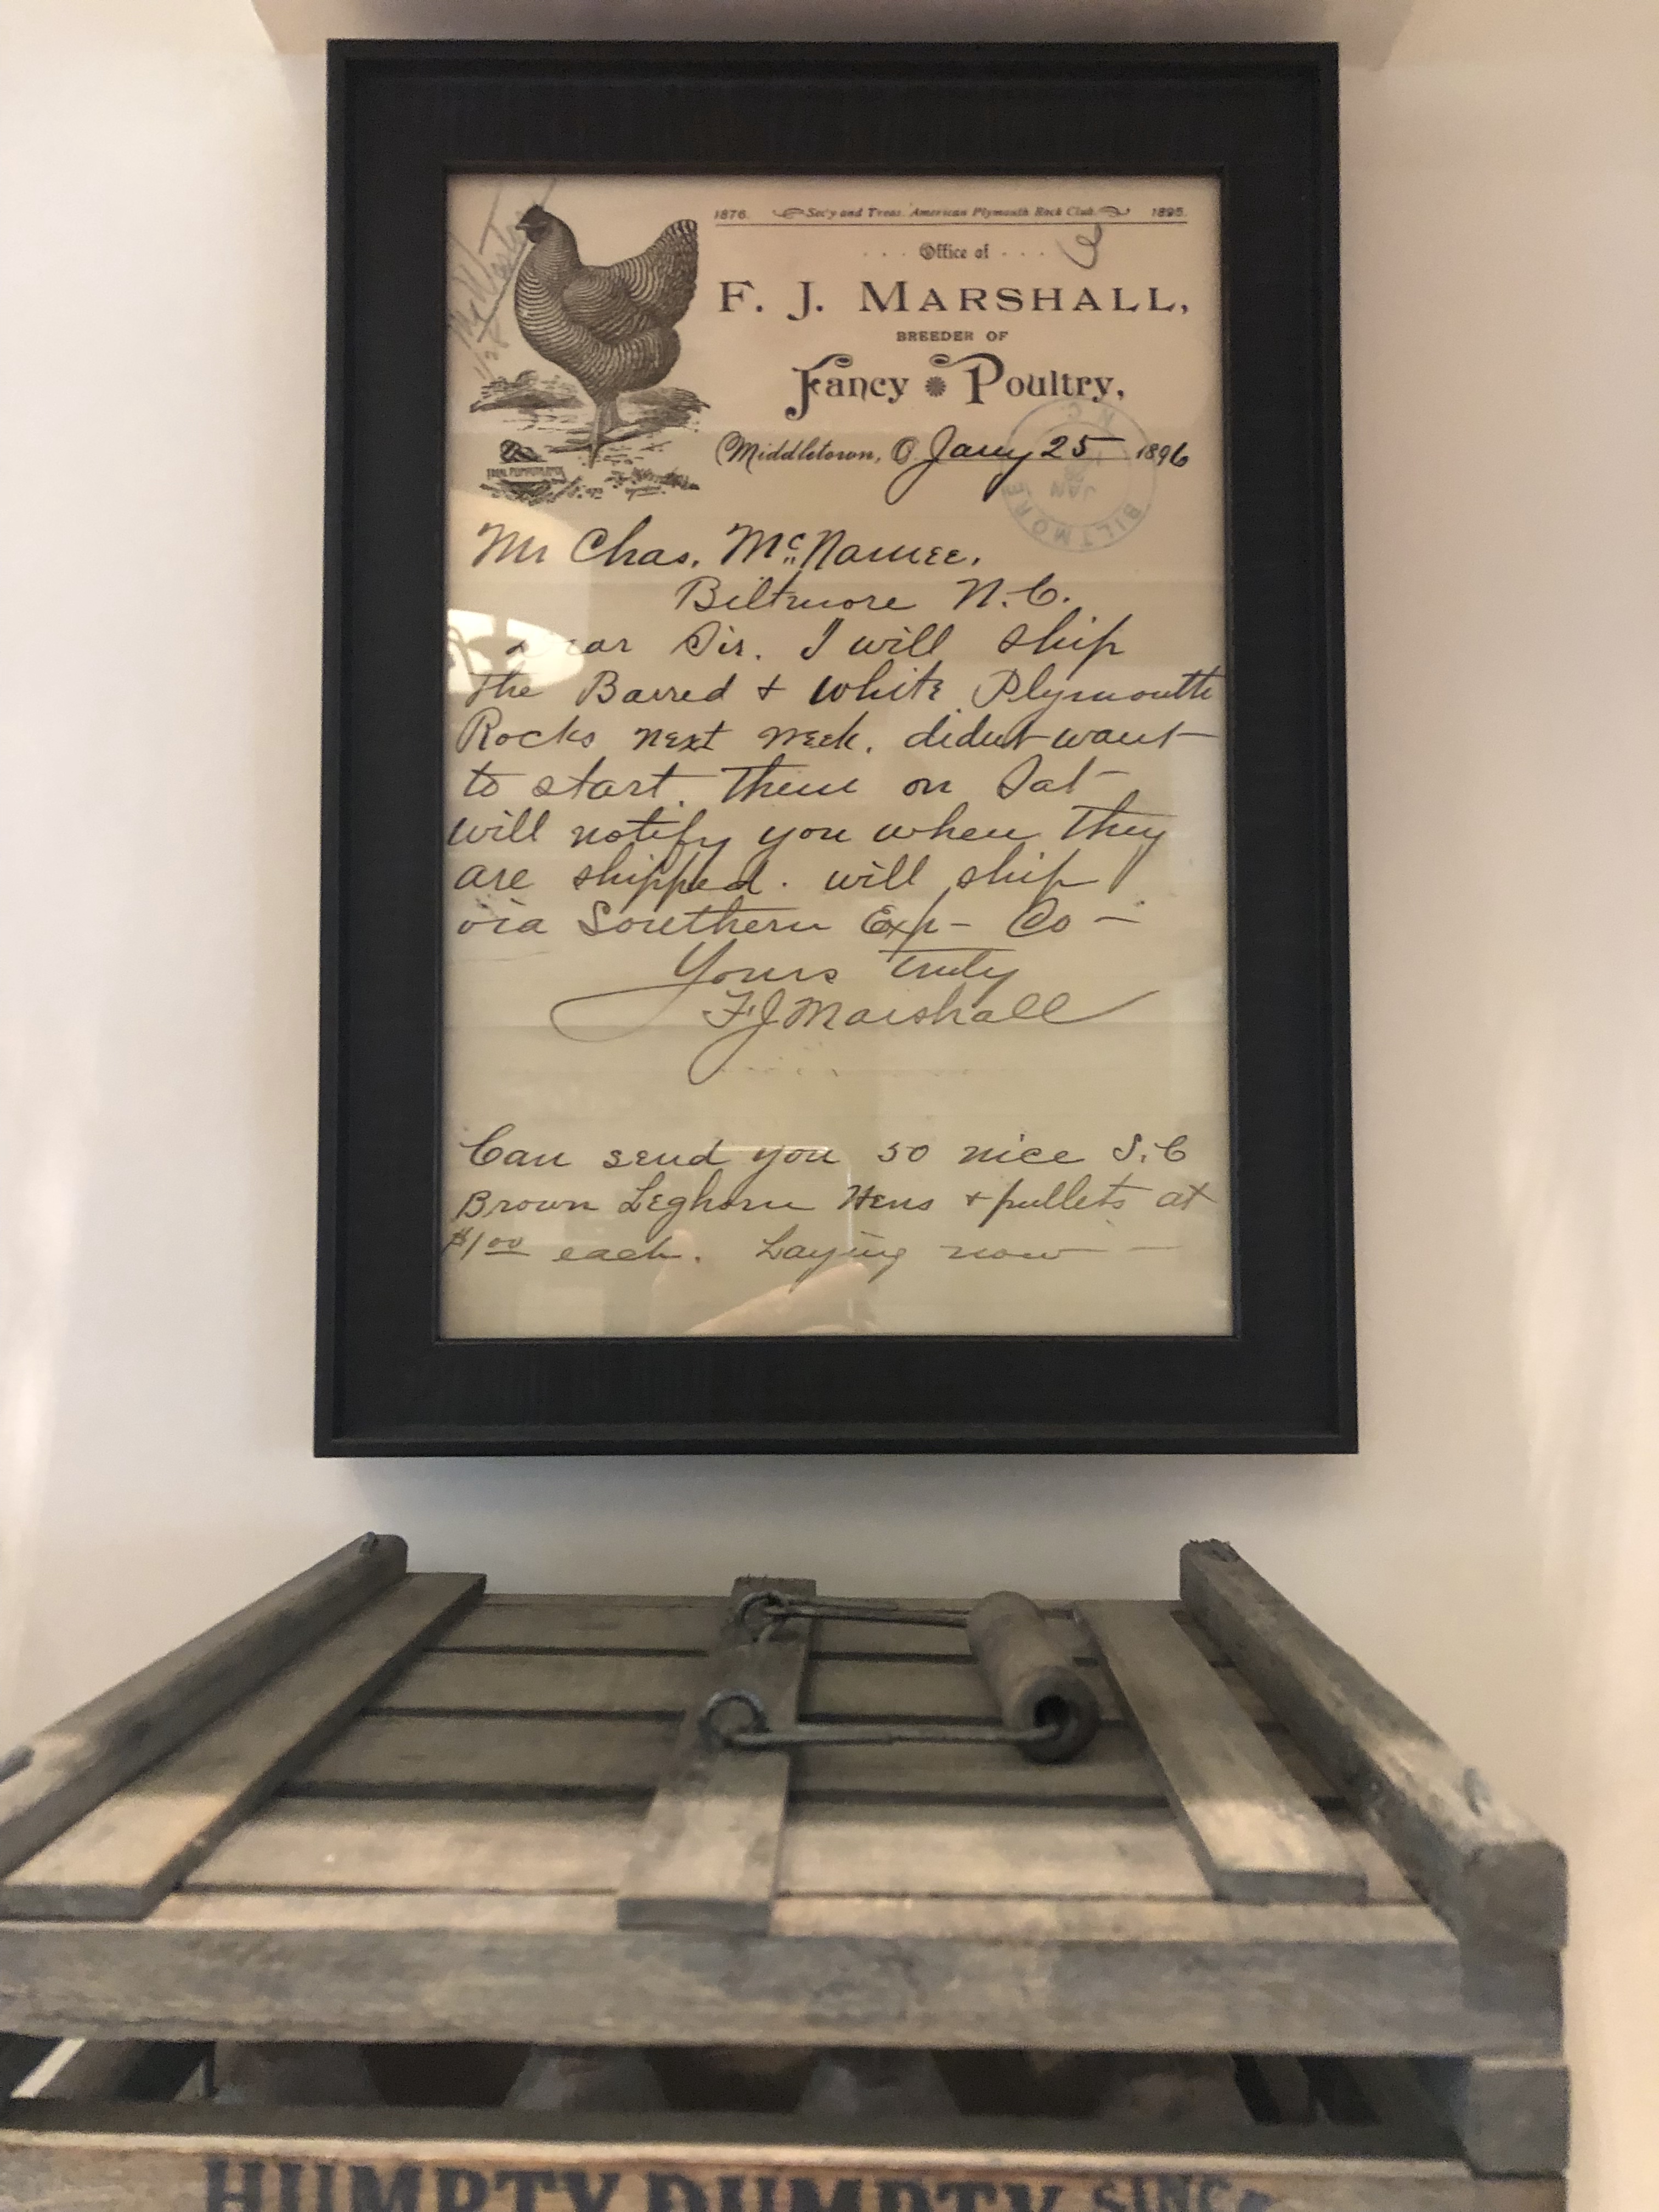 1876. Sec'y and Treas. American Plymouth Rock Club. 1895.
Office of
F. J. MARSHALL,
BREEDER OF
Fancy Poultry,
Middletown, O. Jany 25 1896
BILTMORE N.C.
JAN
Mr Chas. McNamee.
Biltmore N.C.
Dear Sir. I will ship
the Barred + White Plymouth
Rocks next week. didnt want
to start them on Sat
will notify you when they
are shipped. will ship
via Southern Exp- Co-
Yours truly
F.J. Marshall
Can send you 50 nice S.C
Brown Leghorn Hens + pullets at
$1.00 each. Laying now-
HUMPTY DUMPTY SINCE